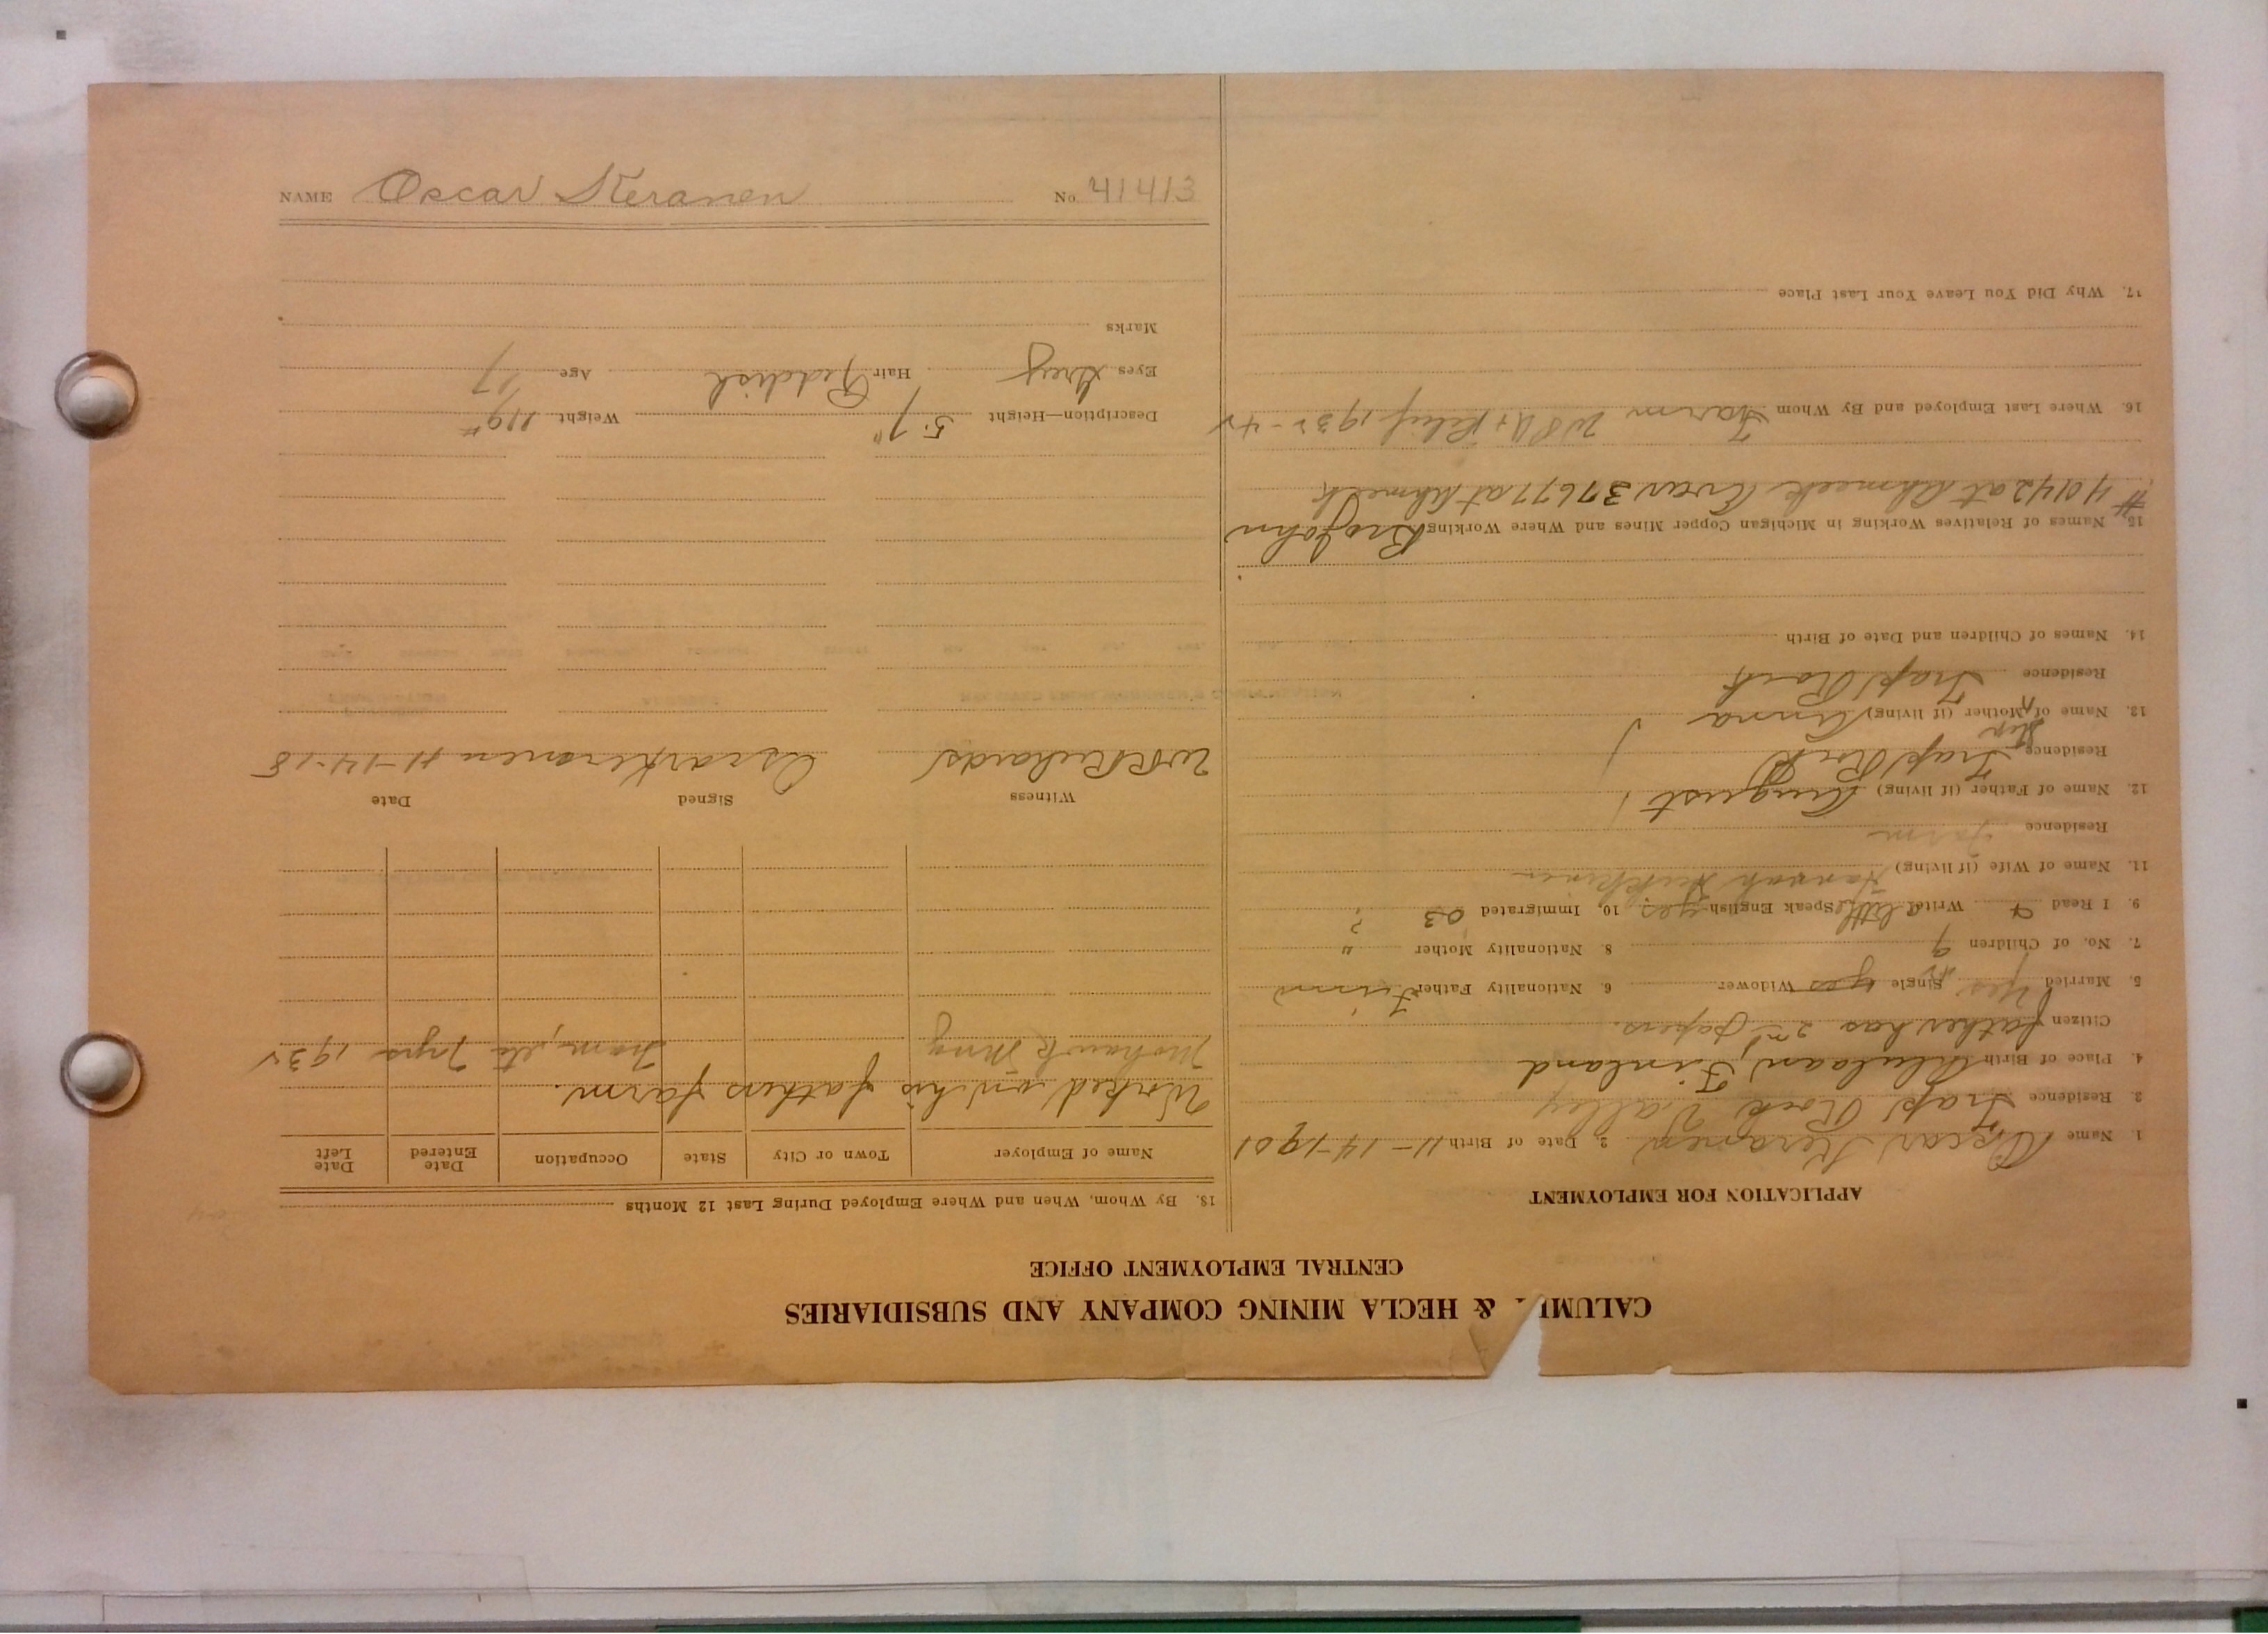 NAME Oscar Keranen No. 41413
CALUMET & HECLA MINING COMPANY AND SUBSIDIARIES
CENTRAL EMPLOYMENT OFFICE
APPLICATION FOR EMPLOYMENT
1. Name Oscar Keranen 2. Date of Birth 11-14-1901
3. Residence Trap Rock Valley
4. Place of Birth Finland
Citizen father has 2nd papers.
5. Married Yes Single yes Widower 6. Nationality Father Finn
7. No. of Children 9 8. Nationality Mother "
9. I Read Write a little Speak English yes. 10. Immigrated 03 ?
11. Name of Wife (if living) Hannah
Residence Farm
12. Name of Father (if living) August
Residence Trap Rock
13. Name of Step Mother (if living) Anna
Residence Trap Rock
14. Names of Children and Date of Birth
15. Names of Relatives Working in Michigan Copper Mines and Where Working Bro John
# 40142 at Ahmeek 37677 at Ahmeek
16. Where Last Employed and By Whom Farm WPA + Relief 1932-42
17. Why Did You Leave Your Last Place
18. By Whom, When and Where Employed During Last 12 Months
Name of Employer Town or City State Occupation Date Entered Date Left
Worked on his fathers farm.
Mohawk Mng Tram, etc 7 yrs 1932
Witness Signed Date
W R Richards Oscar Keranen 11-14-18
Description—Height 5' 7" Weight 119#
Eyes Grey Hair Reddish Age 17
Marks